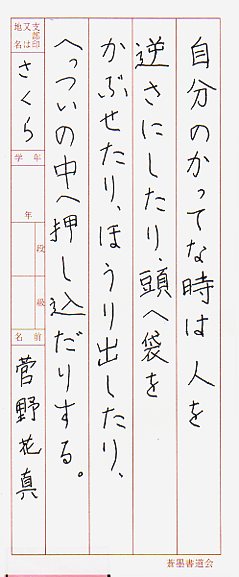 自分のかってな時は人を
逆さにしたり、頭へ袋を
かぶせたり、ほうり出したり、
へっついの中へ押し込だりする。
支部印又は地名
さくら
学年
年
段
級
名前
菅野花真
蒼墨書道会